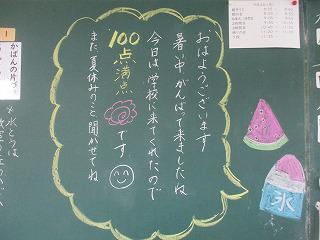 おはようございます
暑い中がんばって来ましたね
今日は学校に来てくれたので
100点満点
です
また夏休みのこと聞かせてね
氷
1
かばんの片づ